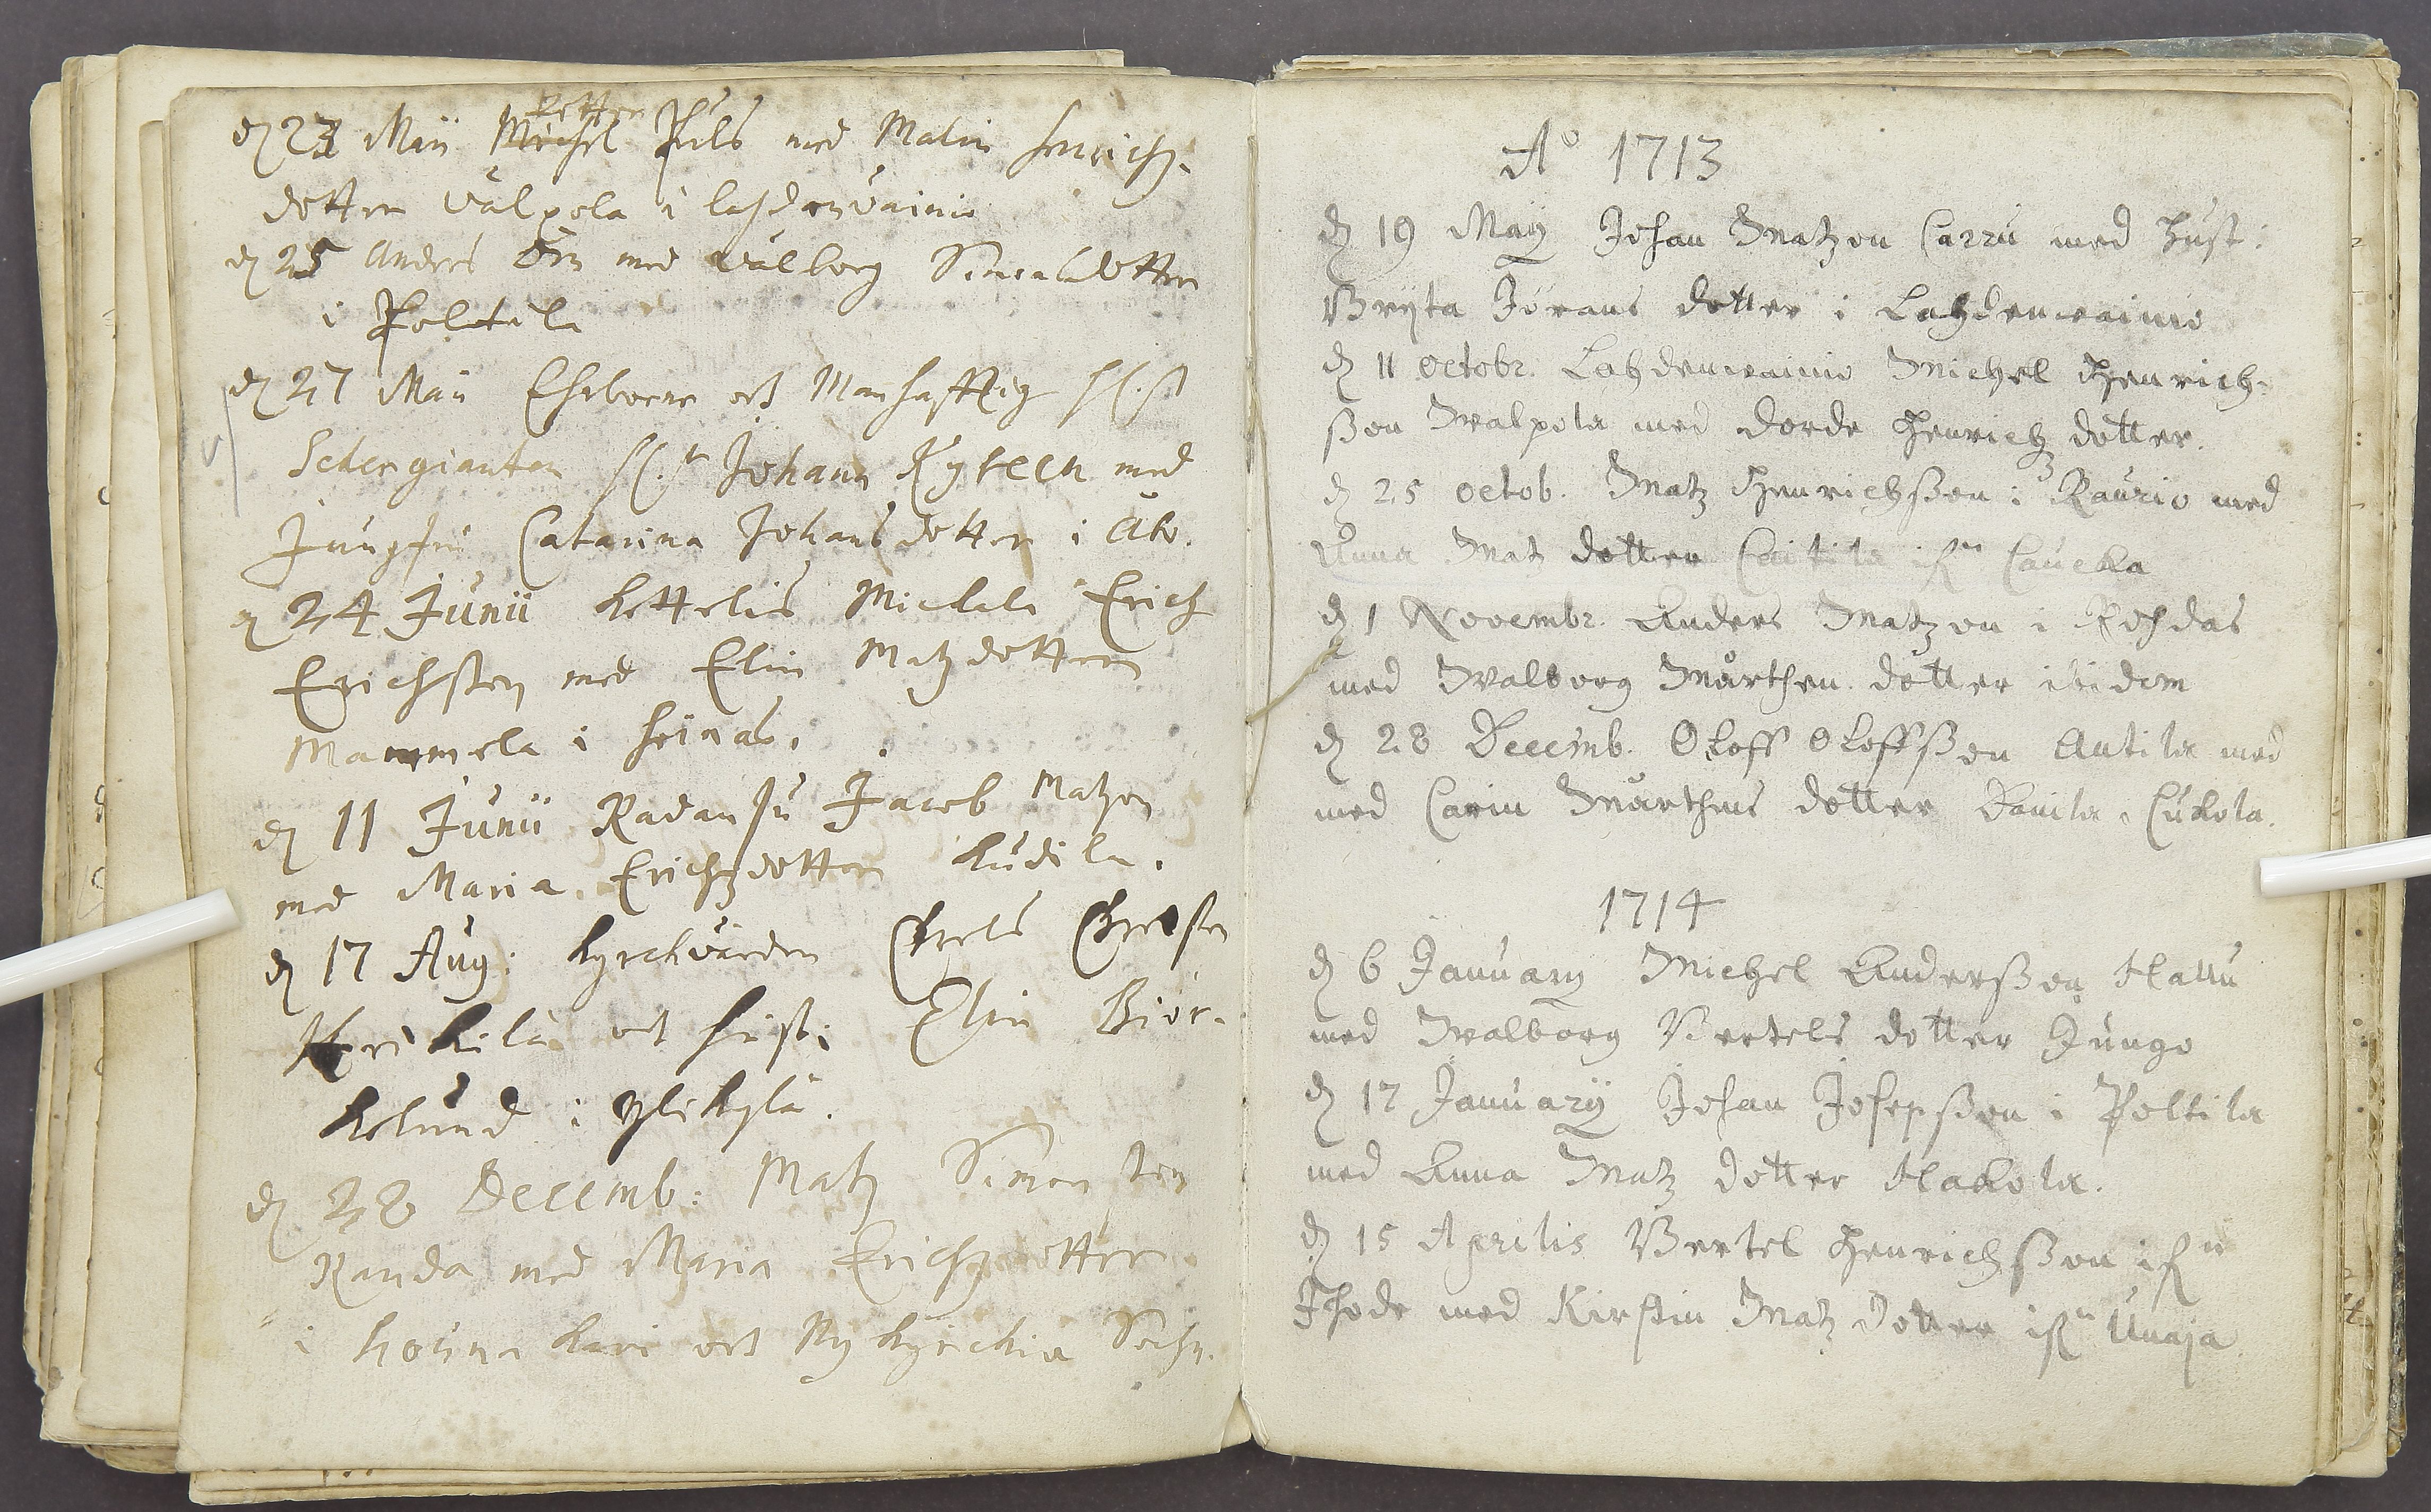 Petter
d 23 Maii Michel Puls med Malin Henrichz-
dotter Välpola i lahdenvainio
d 25 Anders Örn med Valborg Simonsdotter
i Poltila
d 27 Maii Ehrborne och Manhafftig H:r
Sedergianten H:r Johann Kyreen med
Jungfru Catarina Johansdotter i Åbo.
d 24 Junii Kettelis Mickala Erich
Erichsson med Elin Matzdotter
Mammela i Heinäs.
d 11 Junii Radansu Jacob Matzon
med Maria Erichzdotter Kudila.
d 17 Aug: Kyrckvärden
och hust: Elin Biör-
kelund i ylikylä.
d 28 Decemb: Matz Simonsson
Randa med Maria Erichzdotter
i och Nykyrckia Sochn.
A° 1713
d 19 Maÿ Johan Matzon Carru med Hust:
Bryta Jörans dotter i Lahdenwainio
d 11 octobr. Lahdenwainio Michel Henrich-
sson Walpola med Dorde Henrichz dotter.
d 25 octob. Matz Henrichsson i Raurio med
Anna Matz dotter Caitila ifrn Caucka
d 1 Novembr. Anders Matzon i Rohdas
med Walborg Mårthen dotter ibidem
d 28 Decemb. Oloff Oloffsson Antila med
med Carin Mårthens dotter Danila, Cukola.
1714
d 6 January Michel Andersson Hallu
med Walborg Bertels dotter Jungo
d 17 Januarÿ Johan Josepsson i Poltila
med Anna Matz dotter Hakola.
d 15 Aprilis Bertel Henrichsson ifrn
Ihode med Kirstin Matz dotter ifrn Unaja